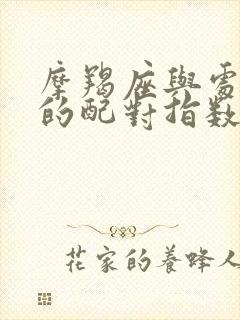 摩羯座與處
的配對指數
花家的養蜂人